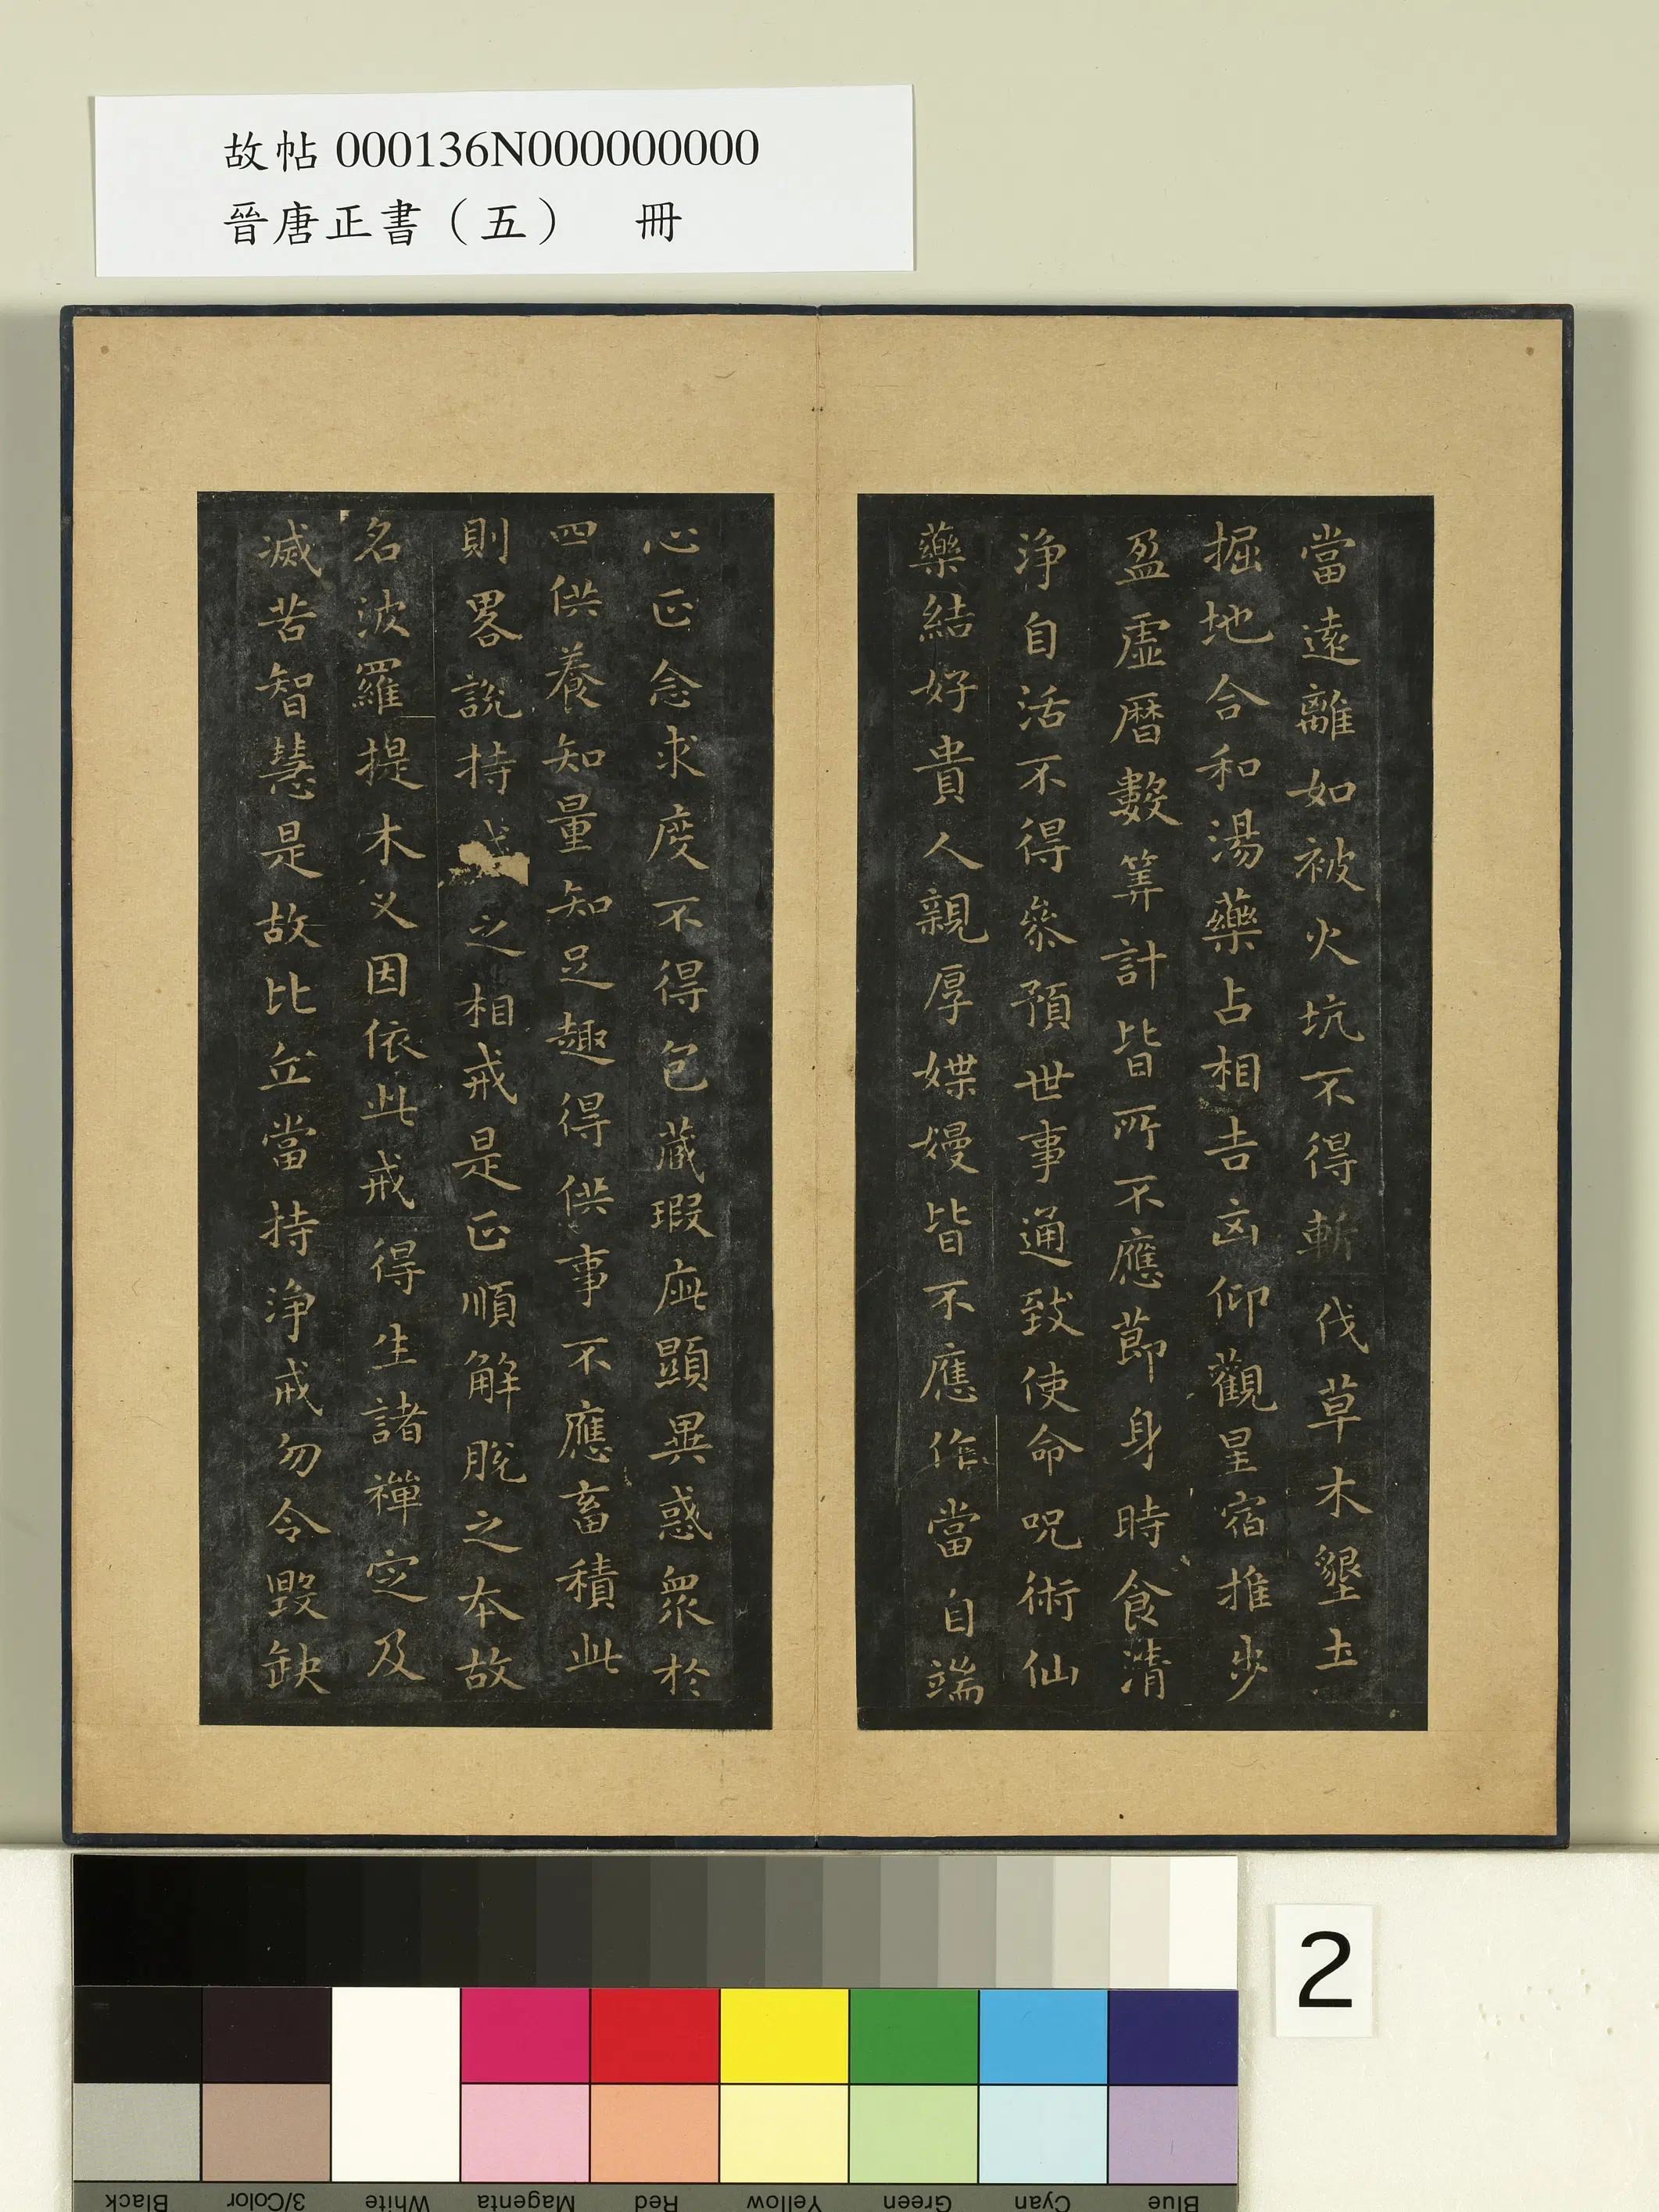 故帖000136N000000000
晉唐正書（五）　冊
當遠離如被火坑不得斬伐草木墾土
掘地合和湯藥占相吉凶仰觀星宿推步
盈虛曆數筭計皆所不應節身時食清
淨自活不得參預世事通致使命呪術仙
藥結好貴人親厚媟嫚皆不應作當自端
心正念求度不得包藏瑕疵顯異惑眾於
四供養知量知足趣得供事不應畜積此
則畧說持戒之相戒是正順解脫之本故
名波羅提木义因依此戒得生諸禪定及
滅苦智慧是故比丘當持淨戒勿令毀缺
2
Black 3/Color White Magenta Red Yellow Green Cyan Blue